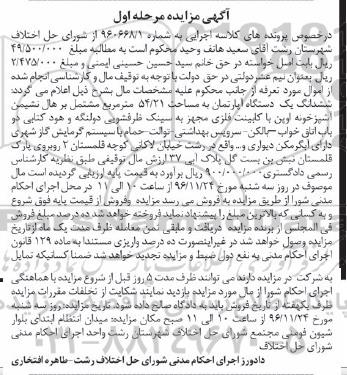 آگهی مزایده مرحله اول
درخصوص پرونده های کلاسه اجرایی به شماره ۹۶۰۶۶۸/۱ از شورای حل اختلاف
شهرستان رشت آقای سعید هاتف وحید محکوم است به مطالبه مبلغ ۴۹/۵۰۰/۰۰۰
ریال بابت اصل خواسته در حق خانم سید حسین حسینی ایمنی و مبلغ ۲/۴۷۵/۰۰۰
ریال بعنوان نیم عشر دولتی در حق دولت با توجه به توقیف مال و کارشناسی انجام شده
از اموال مورد تعرفه از جانب محکوم علیه مشخصات مال بشرح ذیل اعلام می گردد:
ششدانگ یک دستگاه آپارتمان به مساحت ۵۴/۲۱ مترمربع مشتمل بر هال نشیمن
آشپزخونه اوپن با کابینت فلزی مجهز به سینک ظرفشویی دولنگه و هود کتابی دو
باب اتاق خواب -بالکن- سرویس بهداشتی -توالت-حمام با سیستم گرمایش گاز شهری
دارای آبگرمکن دیواری و... واقع در رشت خیابان لاکانی کوچه قلمستان ۲ روبروی پارک
قلمستان نبش بن بست گل پلاک آبی ۳۷ ارزش مال توقیفی طبق نظریه کارشناس
رسمی دادگستری ۹۰۰/۰۰۰/۰۰۰ ریال برآورد به قیمت پایه ارزیابی گردیده است مال
موصوف در روز سه شنبه مورخ ۹۶/۱۱/۲۴ از ساعت ۱۰ الی ۱۱ در محل اجرای احکام
مدنی شورا از طریق مزایده به فروش می رسد مزایده وفروش از قیمت پایه فوق شروع
و به کسانی که بالاترین مبلغ را پیشنهاد نماید فروخته خواهد شد ده درصد مبلغ فروش
فی المجلس از برنده مزایده دریافت و مابقی ثمن معامله ظرف مدت یک ماه از تاریخ
مزایده وصول خواهد شد در غیراینصورت ده درصد واریزی مستندا به ماده ۱۲۹ قانون
اجرای احکام مدنی به نفع دولت ضبط و مزایده تجدید خواهد شد ضمنا کسانیکه تمایل
به شرکت در مزایده دارند می توانند ظرف مدت ۵ روز قبل از شروع مزایده با هماهنگی
اجرای احکام شورا از مال مورد مزایده بازدید نمایند شکایت از تخلفات مقررات مزایده
ظرف یکهفته از تاریخ فروش باید به دادگاه صالح داده شود. تاریخ مزایده: روز سه شنبه
مورخ ۹۶/۱۱/۲۴ از ساعت ۱۰ الی ۱۱ صبح مکان مزایده: میدان انتظام ابتدای بلوار
شیون فومنی مجتمع شورای حل اختلاف شهرستان رشت واحد اجرای احکام مدنی
شورای حل اختلاف
دادورز اجرای احکام مدنی شورای حل اختلاف رشت -طاهره افتخاری